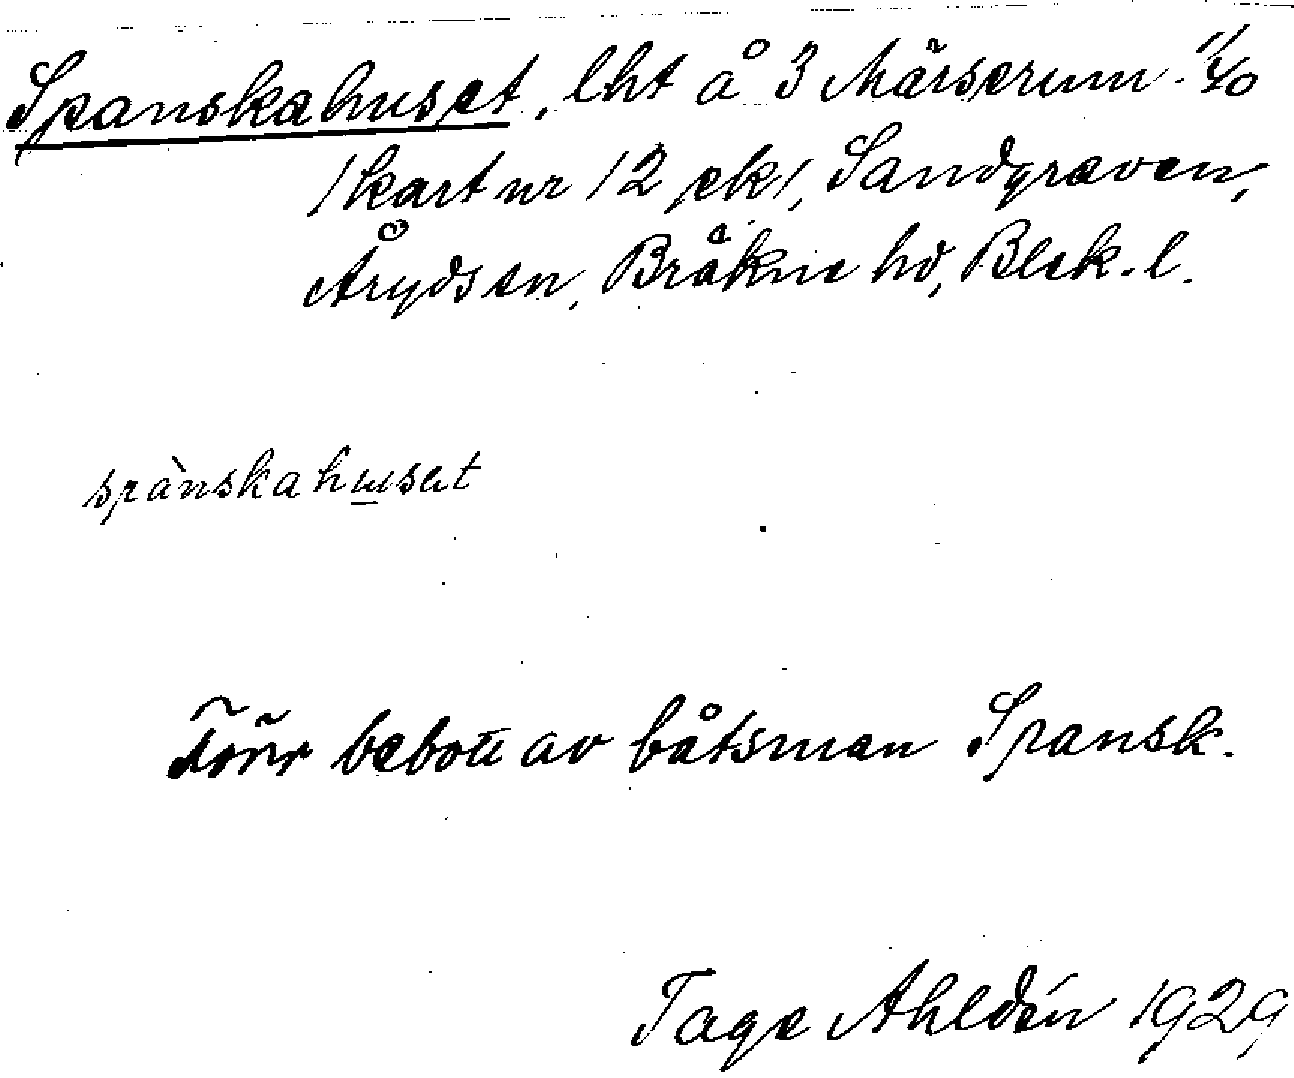 Spanskahuset, lht å 3 Märserum
/kart nr 12 ek/, Sandgraven,
Åryds sn, Bräkne hd, Blek. l.
spànskahusat
Förr bebott av båtsman Spansk.
Tage Ahldén 1929